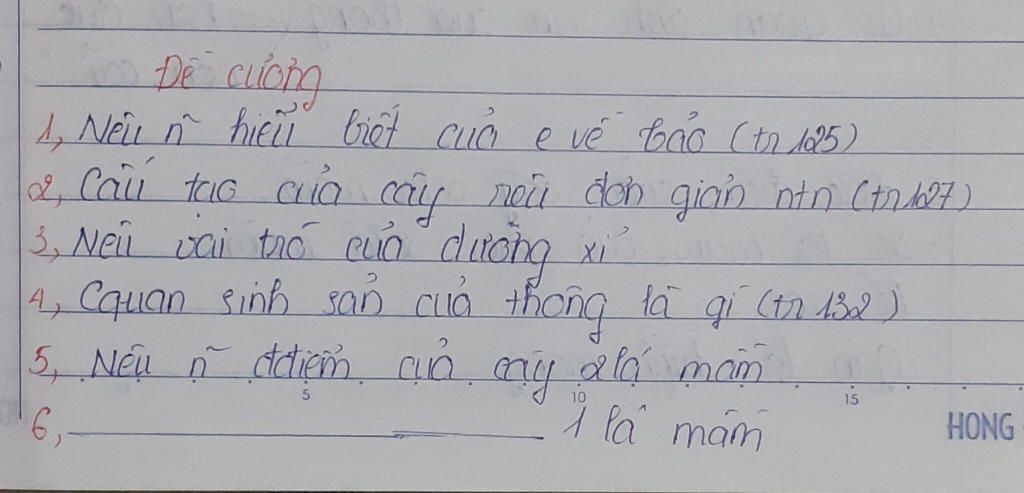 Đề cương
1, Nêu n~ hiểu biết của e về tảo (tr 125)
2, Cấu tạo của cây rêu đơn giản ntn (tr 127)
3, Nêu vai trò của dương xỉ
4, Cquan sinh sản của thông là gì (tr 132)
5, Nêu n~ đđiểm của cây 2 lá mầm
5 10 15
6, ____________ 1 lá mầm
HONG